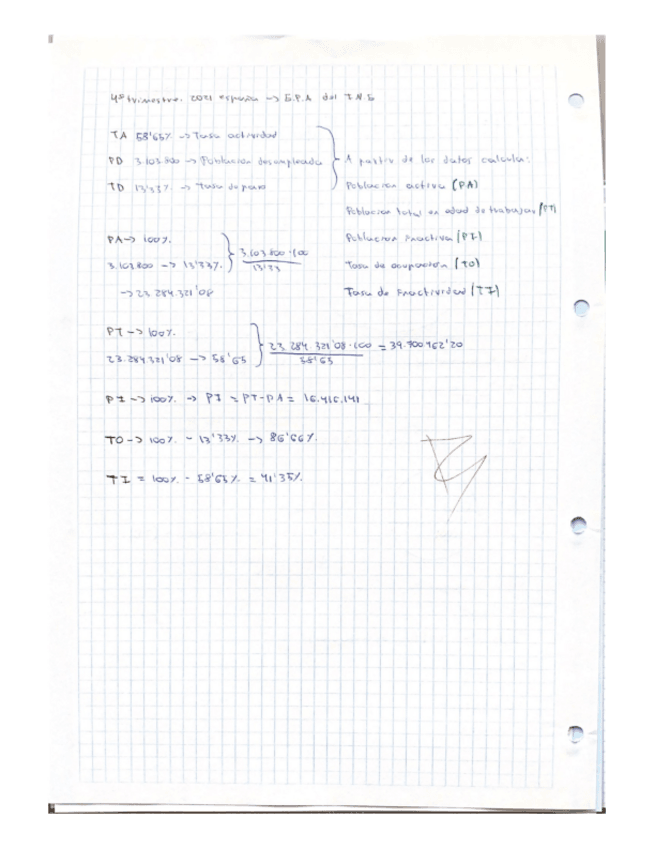 4º trimestre. 2021 España -> E.P.A del I.N.E
TA 58'65% -> Tasa actividad
PD 3.103.800 -> Poblacion desempleada
TD 13'33% -> Tasa de paro
A partir de los datos calcula:
Poblacion activa (PA)
Poblacion total en edad de trabajar (PT)
Poblacion Inactiva (PI)
Tasa de ocupación (TO)
Tasa de Inactividad (TI)
PA -> 100%
3.103.800 -> 13'33%
3.103.800·100
13'33
-> 23.284.321'08
PT -> 100%
23.284.321'08 -> 58'65
23.284.321'08·100 = 39.700.462'20
58'65
PI -> 100% -> PI = PT-PA = 16.416.141
TO -> 100% - 13'33% -> 86'66%
TI = 100% - 58'65% = 41'35%